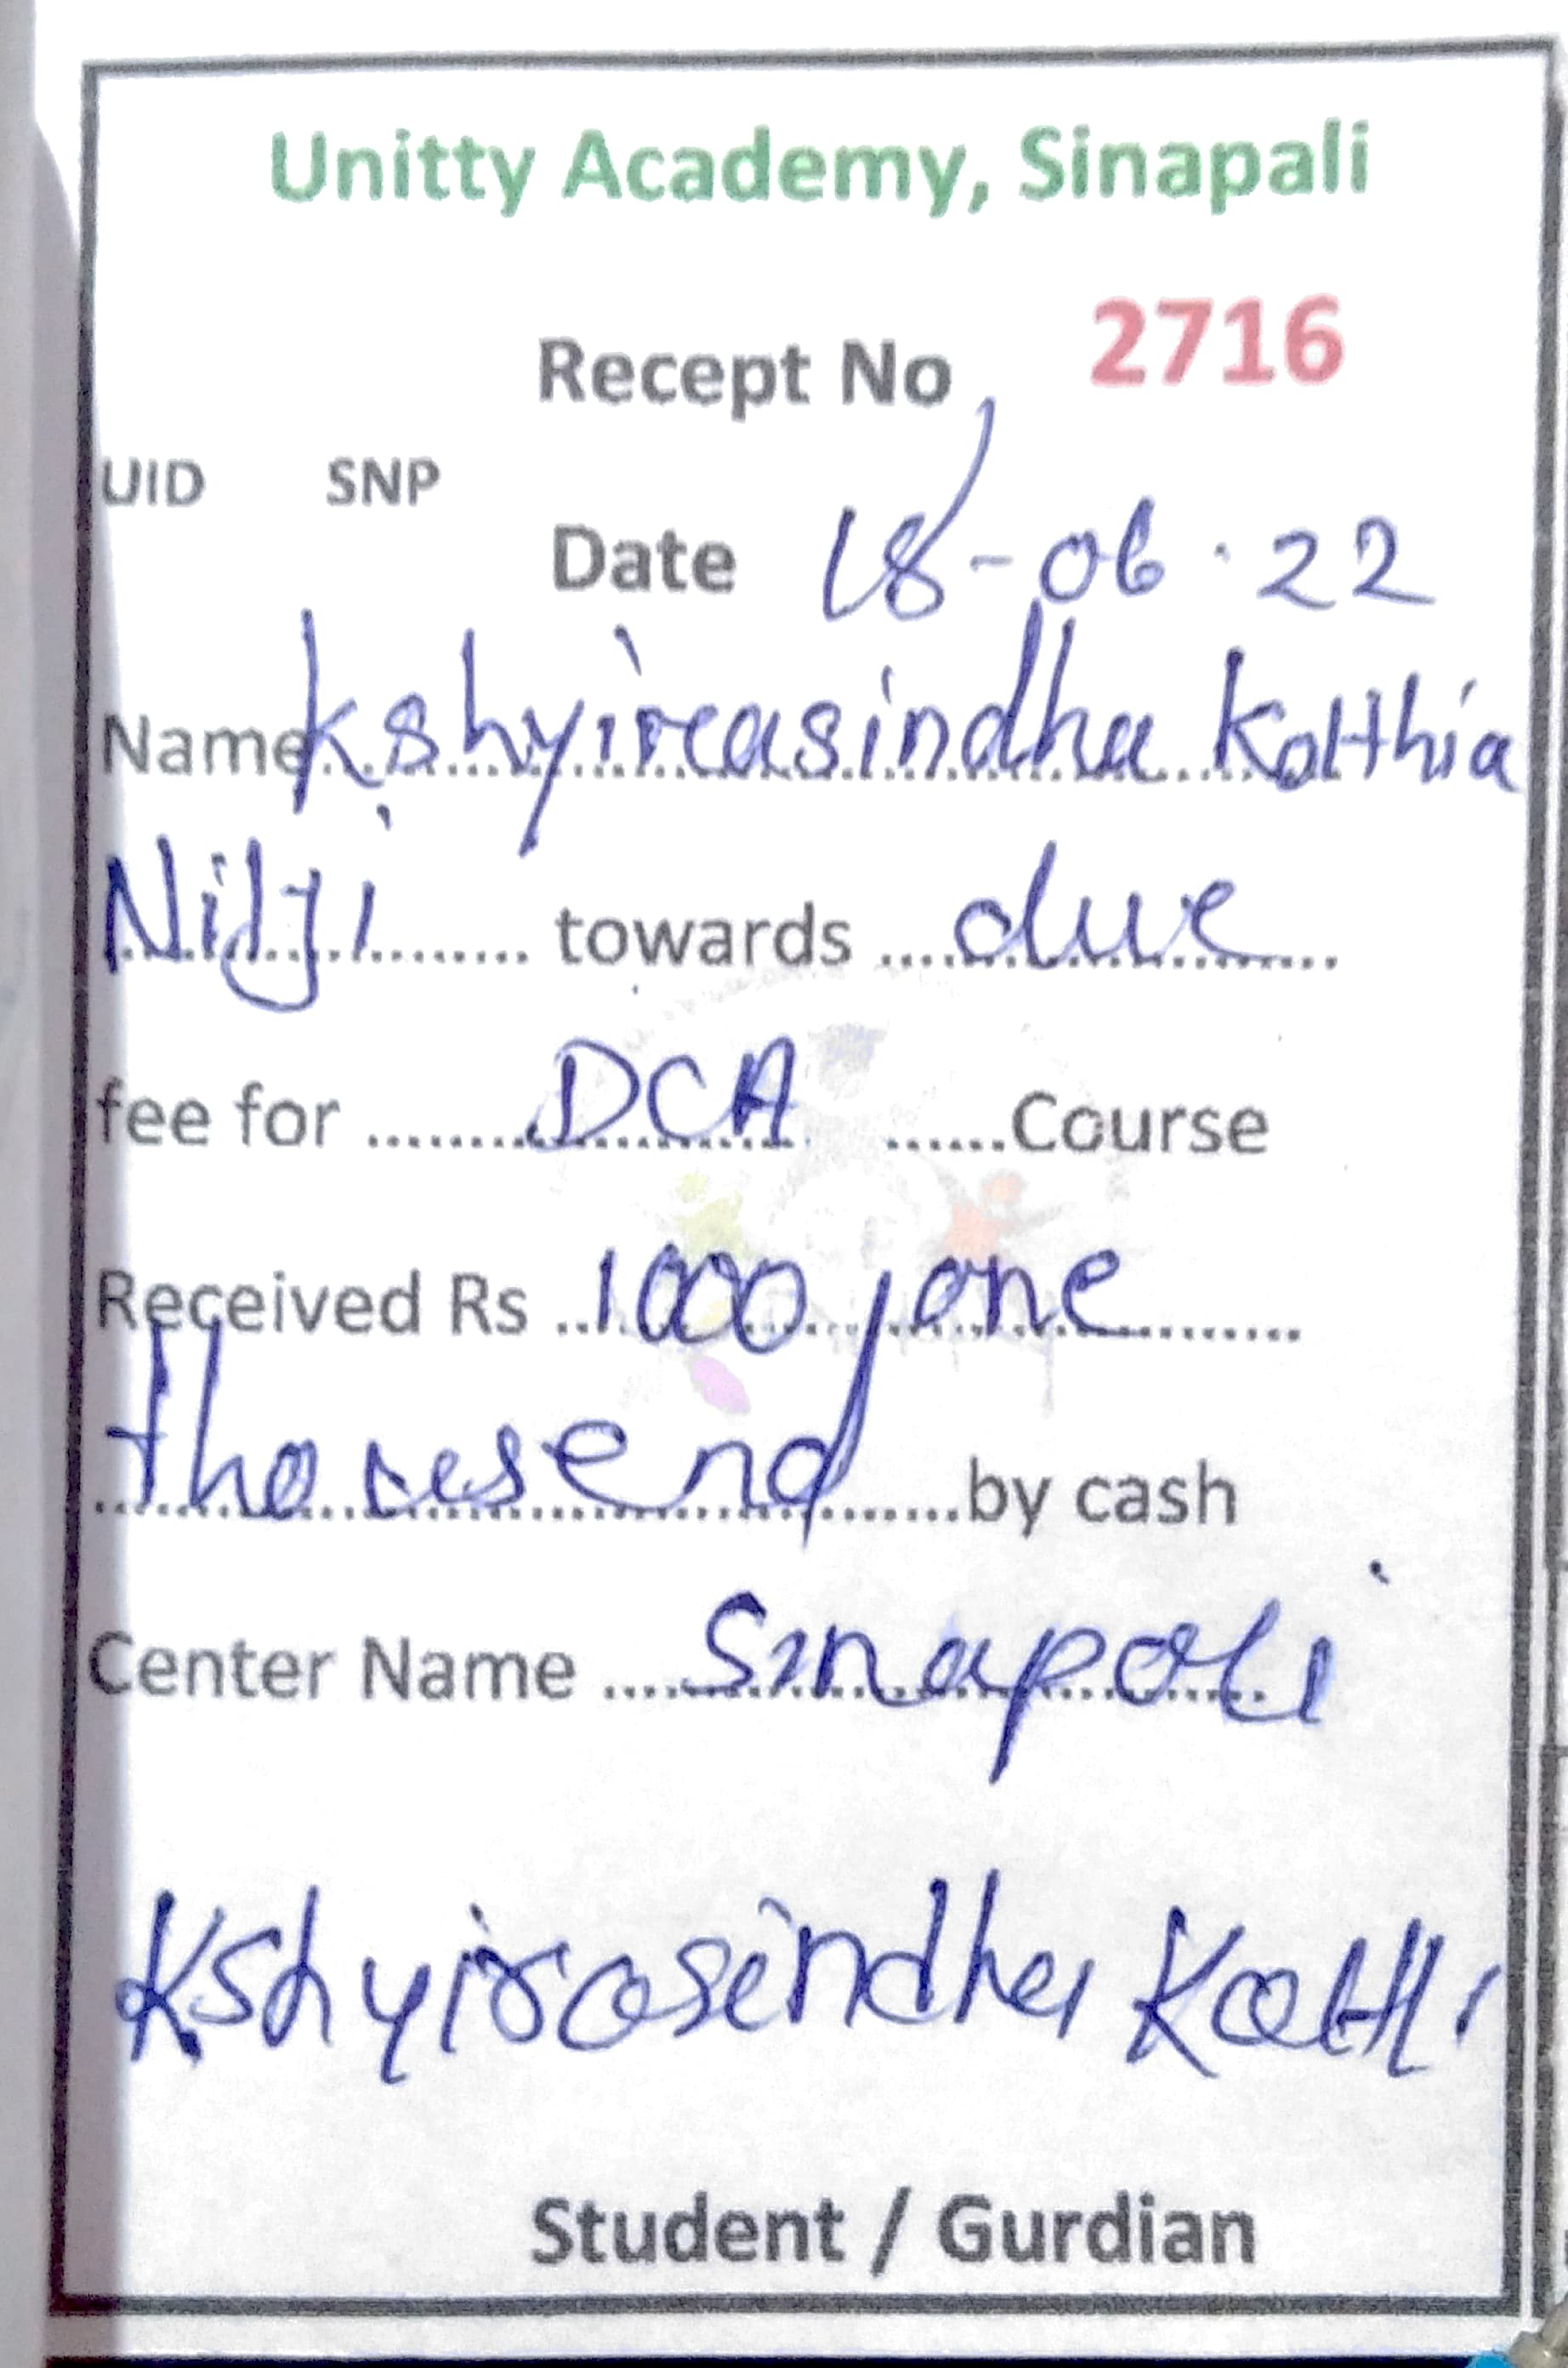 Unitty Academy, Sinapali
Recept No 2716
UID SNP
Date 18-06-22
Name Kshyirasindhu Katthia
Nilji towards due
fee for DCA Course
Received Rs 1000, one
thousend by cash
Center Name Sinapali
Kshyirasindhu Katthi
Student / Gurdian